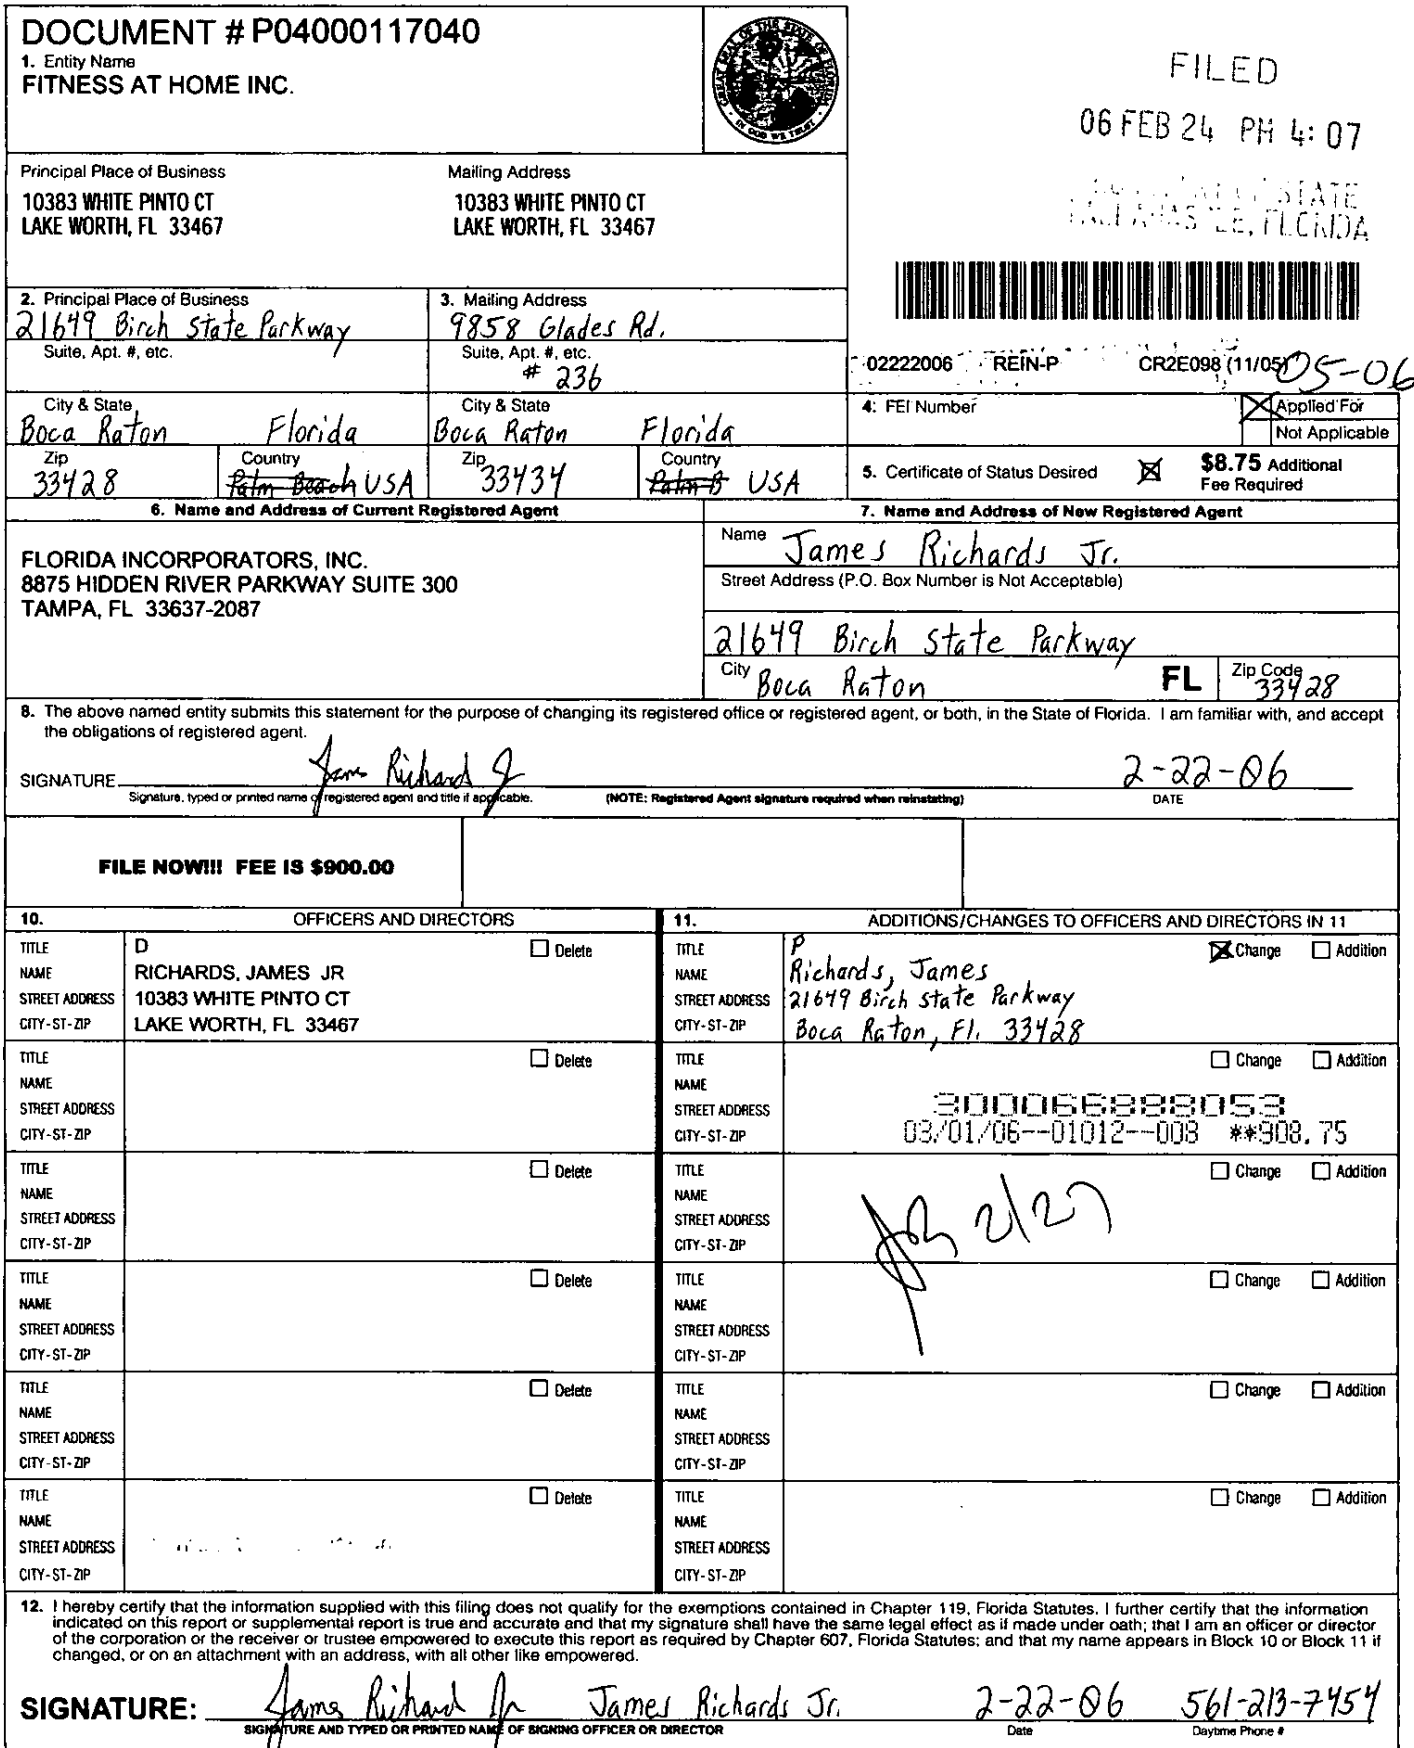 DOCUMENT # P04000117040
1. Entity Name
FITNESS AT HOME INC.
GREAT SEAL OF THE STATE OF FLORIDA
IN GOD WE TRUST
FILED
06 FEB 24 PM 4:07
STATE
FLORIDA
Principal Place of Business
10383 WHITE PINTO CT
LAKE WORTH, FL 33467
Mailing Address
10383 WHITE PINTO CT
LAKE WORTH, FL 33467
2. Principal Place of Business
21649 Birch State Parkway
Suite, Apt. #, etc.
3. Mailing Address
9858 Glades Rd.
Suite, Apt. #, etc.
# 236
02222006 REIN-P CR2E098 (11/05) 05-06
City & State
Boca Raton Florida
City & State
Boca Raton Florida
4: FEI Number
Applied For
Not Applicable
Zip
33428
Country
Palm Beach USA
Zip
33434
Country
Palm B USA
5. Certificate of Status Desired
$8.75 Additional
Fee Required
6. Name and Address of Current Registered Agent
FLORIDA INCORPORATORS, INC.
8875 HIDDEN RIVER PARKWAY SUITE 300
TAMPA, FL 33637-2087
7. Name and Address of New Registered Agent
Name James Richards Jr.
Street Address (P.O. Box Number is Not Acceptable)
21649 Birch State Parkway
City Boca Raton FL Zip Code 33428
8. The above named entity submits this statement for the purpose of changing its registered office or registered agent, or both, in the State of Florida. I am familiar with, and accept
the obligations of registered agent.
SIGNATURE James Richard Jr 2-22-06
Signature, typed or printed name of registered agent and title if applicable. (NOTE: Registered Agent signature required when reinstating) DATE
FILE NOW!!! FEE IS $900.00
10. OFFICERS AND DIRECTORS
11. ADDITIONS/CHANGES TO OFFICERS AND DIRECTORS IN 11
TITLE D Delete
NAME RICHARDS, JAMES JR
STREET ADDRESS 10383 WHITE PINTO CT
CITY-ST-ZIP LAKE WORTH, FL 33467
TITLE P Change Addition
NAME Richards, James
STREET ADDRESS 21649 Birch State Parkway
CITY-ST-ZIP Boca Raton, Fl. 33428
TITLE Delete
NAME
STREET ADDRESS
CITY-ST-ZIP
TITLE Change Addition
NAME
STREET ADDRESS 300066888053
CITY-ST-ZIP 03/01/06--01012--008 **908.75
TITLE Delete
NAME
STREET ADDRESS
CITY-ST-ZIP
TITLE Change Addition
NAME
STREET ADDRESS 2/27
CITY-ST-ZIP
TITLE Delete
NAME
STREET ADDRESS
CITY-ST-ZIP
TITLE Change Addition
NAME
STREET ADDRESS
CITY-ST-ZIP
TITLE Delete
NAME
STREET ADDRESS
CITY-ST-ZIP
TITLE Change Addition
NAME
STREET ADDRESS
CITY-ST-ZIP
TITLE Delete
NAME
STREET ADDRESS
CITY-ST-ZIP
TITLE Change Addition
NAME
STREET ADDRESS
CITY-ST-ZIP
12. I hereby certify that the information supplied with this filing does not qualify for the exemptions contained in Chapter 119, Florida Statutes. I further certify that the information
indicated on this report or supplemental report is true and accurate and that my signature shall have the same legal effect as if made under oath; that I am an officer or director
of the corporation or the receiver or trustee empowered to execute this report as required by Chapter 607, Florida Statutes; and that my name appears in Block 10 or Block 11 if
changed, or on an attachment with an address, with all other like empowered.
SIGNATURE: James Richard Jr James Richards Jr. 2-22-06 561-213-7454
SIGNATURE AND TYPED OR PRINTED NAME OF SIGNING OFFICER OR DIRECTOR Date Daytime Phone #